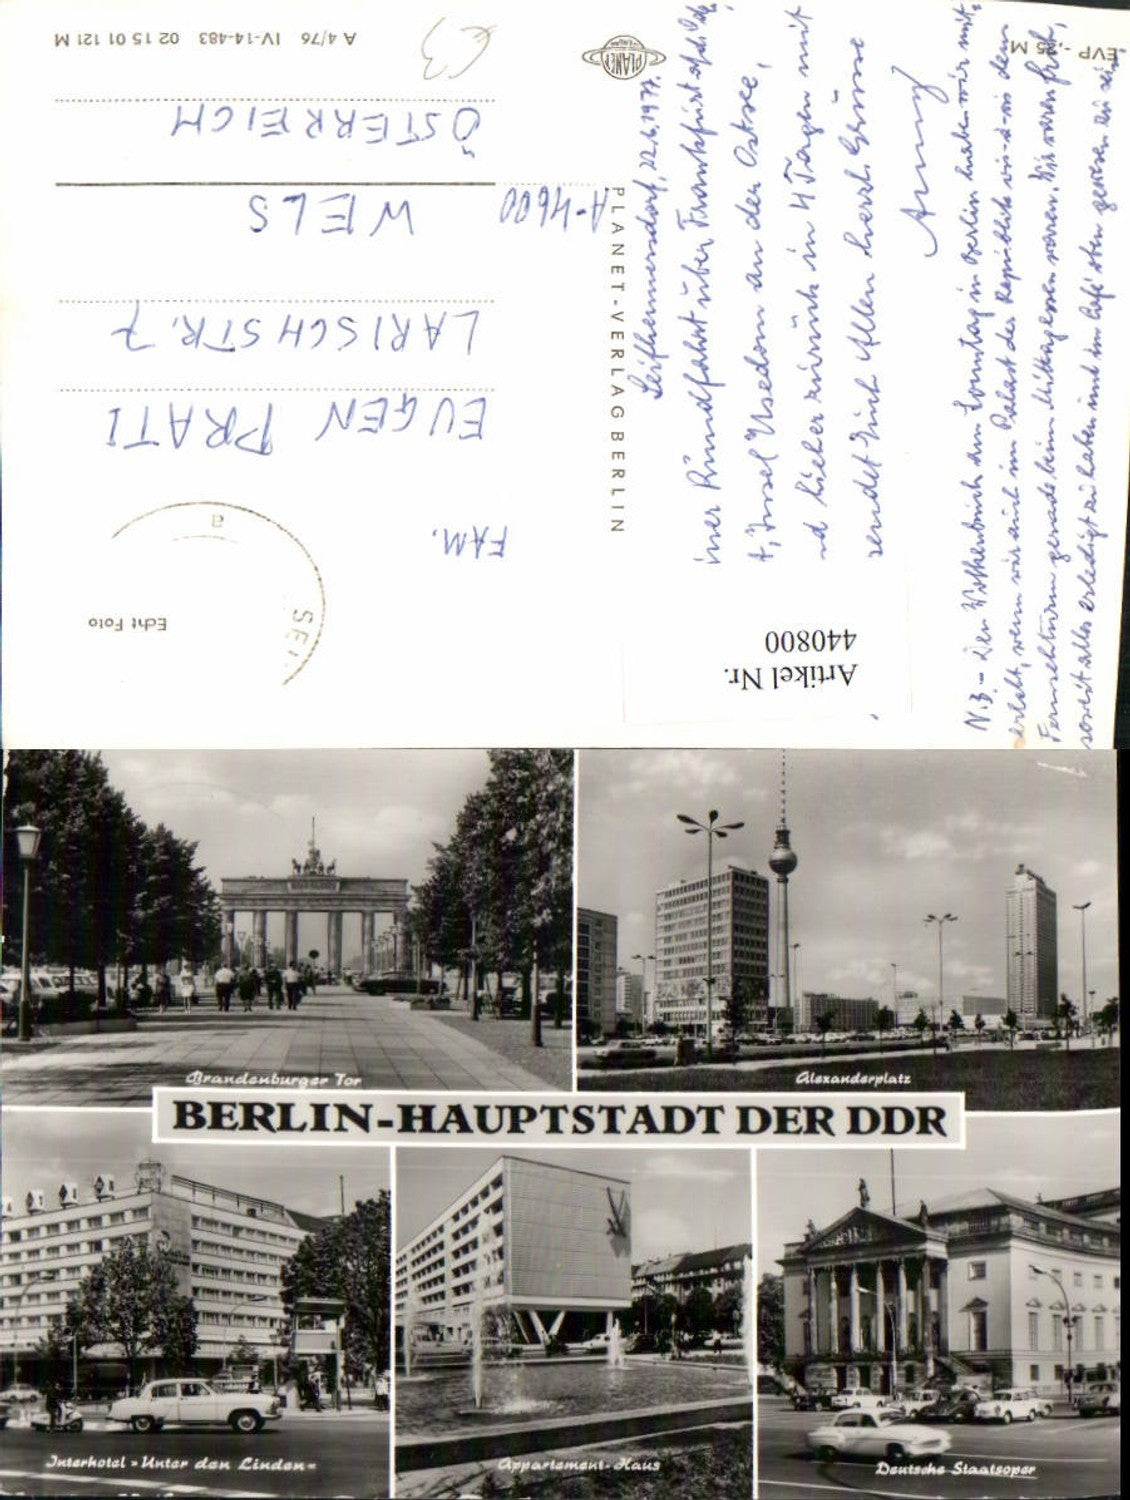 A 4/76 IV-14-483 02 15 01 121 M
EVP -,25 M
PLANET
PLANET-VERLAG BERLIN
Echt Foto
SEI
a
€3
FAM.
EUGEN PRATI
LARISCHSTR. 7
A-4600 WELS
ÖSTERREICH
Seifhennersdorf, 22.6.1977.
Rundfahrt über Frankfurt
Insel Usedom an der Ostsee,
hieher zurück in 4 Tagen mit
sendet Euch Allen herzl. Grüsse
N.B. - Den am Sonntag in Berlin haben wir mit-
erlebt, wenn wir auch im Palast der Republik vis-a-vis dem
Fernsehturm gerade beim Mittagessen waren. Wir waren froh,
soweit alles erledigt zu haben und im Café oben gewesen zu sein
Artikel Nr.
440800
Brandenburger Tor
Alexanderplatz
BERLIN-HAUPTSTADT DER DDR
Interhotel »Unter den Linden«
Appartement-Haus
Deutsche Staatsoper